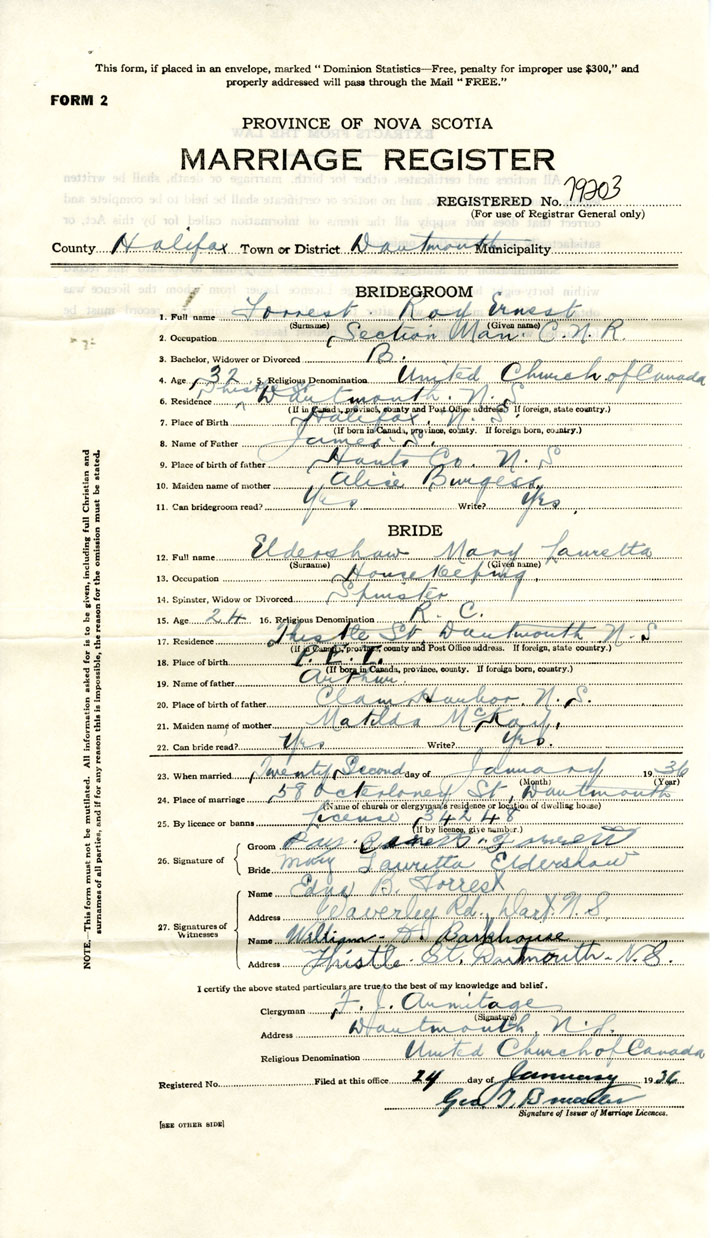 This form, if placed in an envelope, marked "Dominion Statistics—Free, penalty for improper use $300," and
properly addressed will pass through the Mail "FREE."
FORM 2
PROVINCE OF NOVA SCOTIA
MARRIAGE REGISTER
REGISTERED No. 79203
(For use of Registrar General only)
County Halifax Town or District Dartmouth Municipality
BRIDEGROOM
1. Full name Forrest Roy Ernest
(Surname) (Given name)
2. Occupation Section Man. C.N.R.
3. Bachelor, Widower or Divorced B.
4. Age 32 5. Religious Denomination United Church of Canada
6. Residence Thistle St Dartmouth. N.S
(If in Canada, province, county and Post Office address. If foreign, state country.)
7. Place of Birth Halifax, N.S
(If born in Canada, province, county. If foreign born, country.)
8. Name of Father James S.
9. Place of birth of father Hants Co. N.S
10. Maiden name of mother Alice Burgess
11. Can bridegroom read? Yes Write? Yes
BRIDE
12. Full name Eldershaw Mary Lauretta
(Surname) (Given name)
13. Occupation House Keeping
14. Spinster, Widow or Divorced Spinster
15. Age 24 16. Religious Denomination R.C.
17. Residence Thistle St Dartmouth N.S
(If in Canada, province, county and Post Office address. If foreign, state country.)
18. Place of birth P.E.I.
(If born in Canada, province, county. If foreign born, country.)
19. Name of father Arthur
20. Place of birth of father Clam Harbor, N.S.
21. Maiden name of mother Matilda McKay,
22. Can bride read? Yes Write? Yes.
23. When married Twenty Second day of January 1936
(Month) (Year)
24. Place of marriage 58 Octerloney St, Dartmouth
(Name of church or clergyman's residence or location of dwelling house)
25. By licence or banns License 34248
(If by licence, give number.)
26. Signature of
Groom Roy Ernest Forrest
Bride Mary Lauretta Eldershaw
27. Signatures of Witnesses
Name B. Forrest
Address Waverley Rd, Dart. N.S,
Name William H. Barkhouse
Address Thistle St, Dartmouth N.S.
I certify the above stated particulars are true to the best of my knowledge and belief.
Clergyman F. J. Armitage
(Signature)
Address Dartmouth, N.S.
Religious Denomination United Church of Canada
Registered No. Filed at this office 24 day of January 1936
Geo T.
Signature of Issuer of Marriage Licences.
[SEE OTHER SIDE]
NOTE.—This form must not be mutilated. All information asked for is to be given, including full Christian and
surnames of all parties, and if for any reason this is impossible, the reason for the omission must be stated.